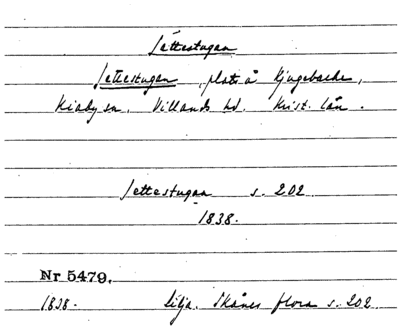 Jättestugan
Jettestugan, plats å Kjugebacke,
Kiaby sn. Villands hd. Krist. län.
Jettestugan s. 202
1838.
Nr 5479.
1838. Lilja. Skånes flora s. 202.